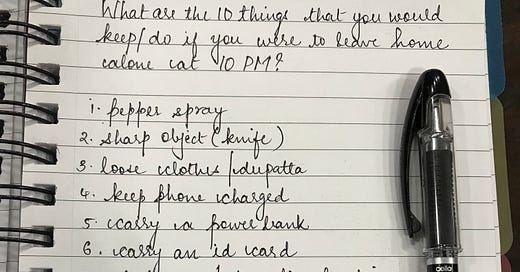 What are the 10 things that you would
keep/do if you were to leave home
alone at 10 PM?
1. pepper spray
2. sharp object (knife)
3. loose clothes/dupatta
4. keep phone charged
5. carry a power bank
6. carry an id card
cello